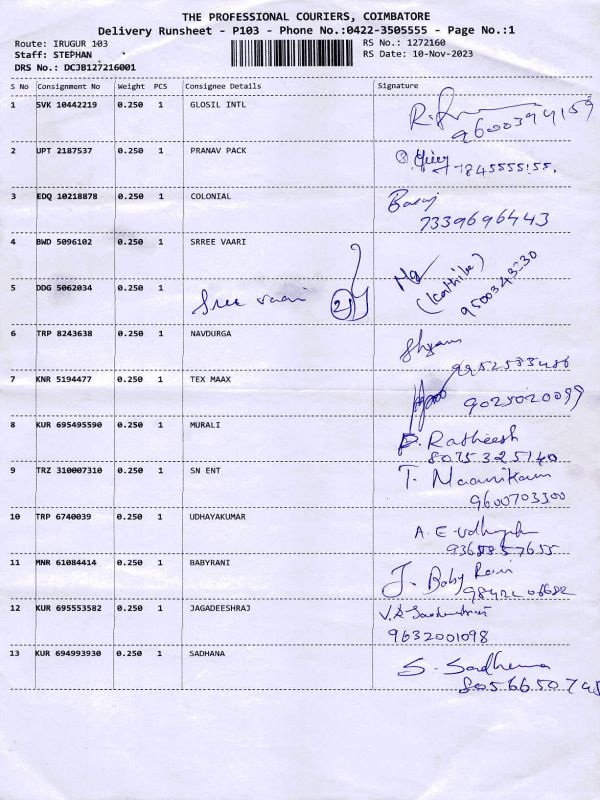 THE PROFESSIONAL COURIERS, COIMBATORE
Delivery Runsheet - P103 - Phone No.:0422-3505555 - Page No.:1
Route: IRUGUR 103 RS No.: 1272160
Staff: STEPHAN RS Date: 10-Nov-2023
DRS No.: DCJB127216001
S No Consignment No Weight PCS Consignee Details Signature
1 SVK 10442219 0.250 1 GLOSIL INTL
9600394159
2 UPT 2187537 0.250 1 PRANAV PACK
7845555155.
3 EDQ 10218878 0.250 1 COLONIAL
7339696443
4 BWD 5096102 0.250 1 SRREE VAARI
5 DDG 5062034 0.250 1 Sree vaari 2
6 TRP 8243638 0.250 1 NAVDURGA Shyam
9952583486
7 KNR 5194477 0.250 1 TEX MAAX
9025020099
8 KUR 695495590 0.250 1 MURALI P. Ratheesh
8075325140
9 TRZ 310007310 0.250 1 SN ENT T. Maanikam
9600703300
10 TRP 6740039 0.250 1 UDHAYAKUMAR A. E-
11 MNR 61084414 0.250 1 BABYRANI J. Baby Rani
12 KUR 695553582 0.250 1 JAGADEESHRAJ
9632001098
13 KUR 694993930 0.250 1 SADHANA S. Sadhana